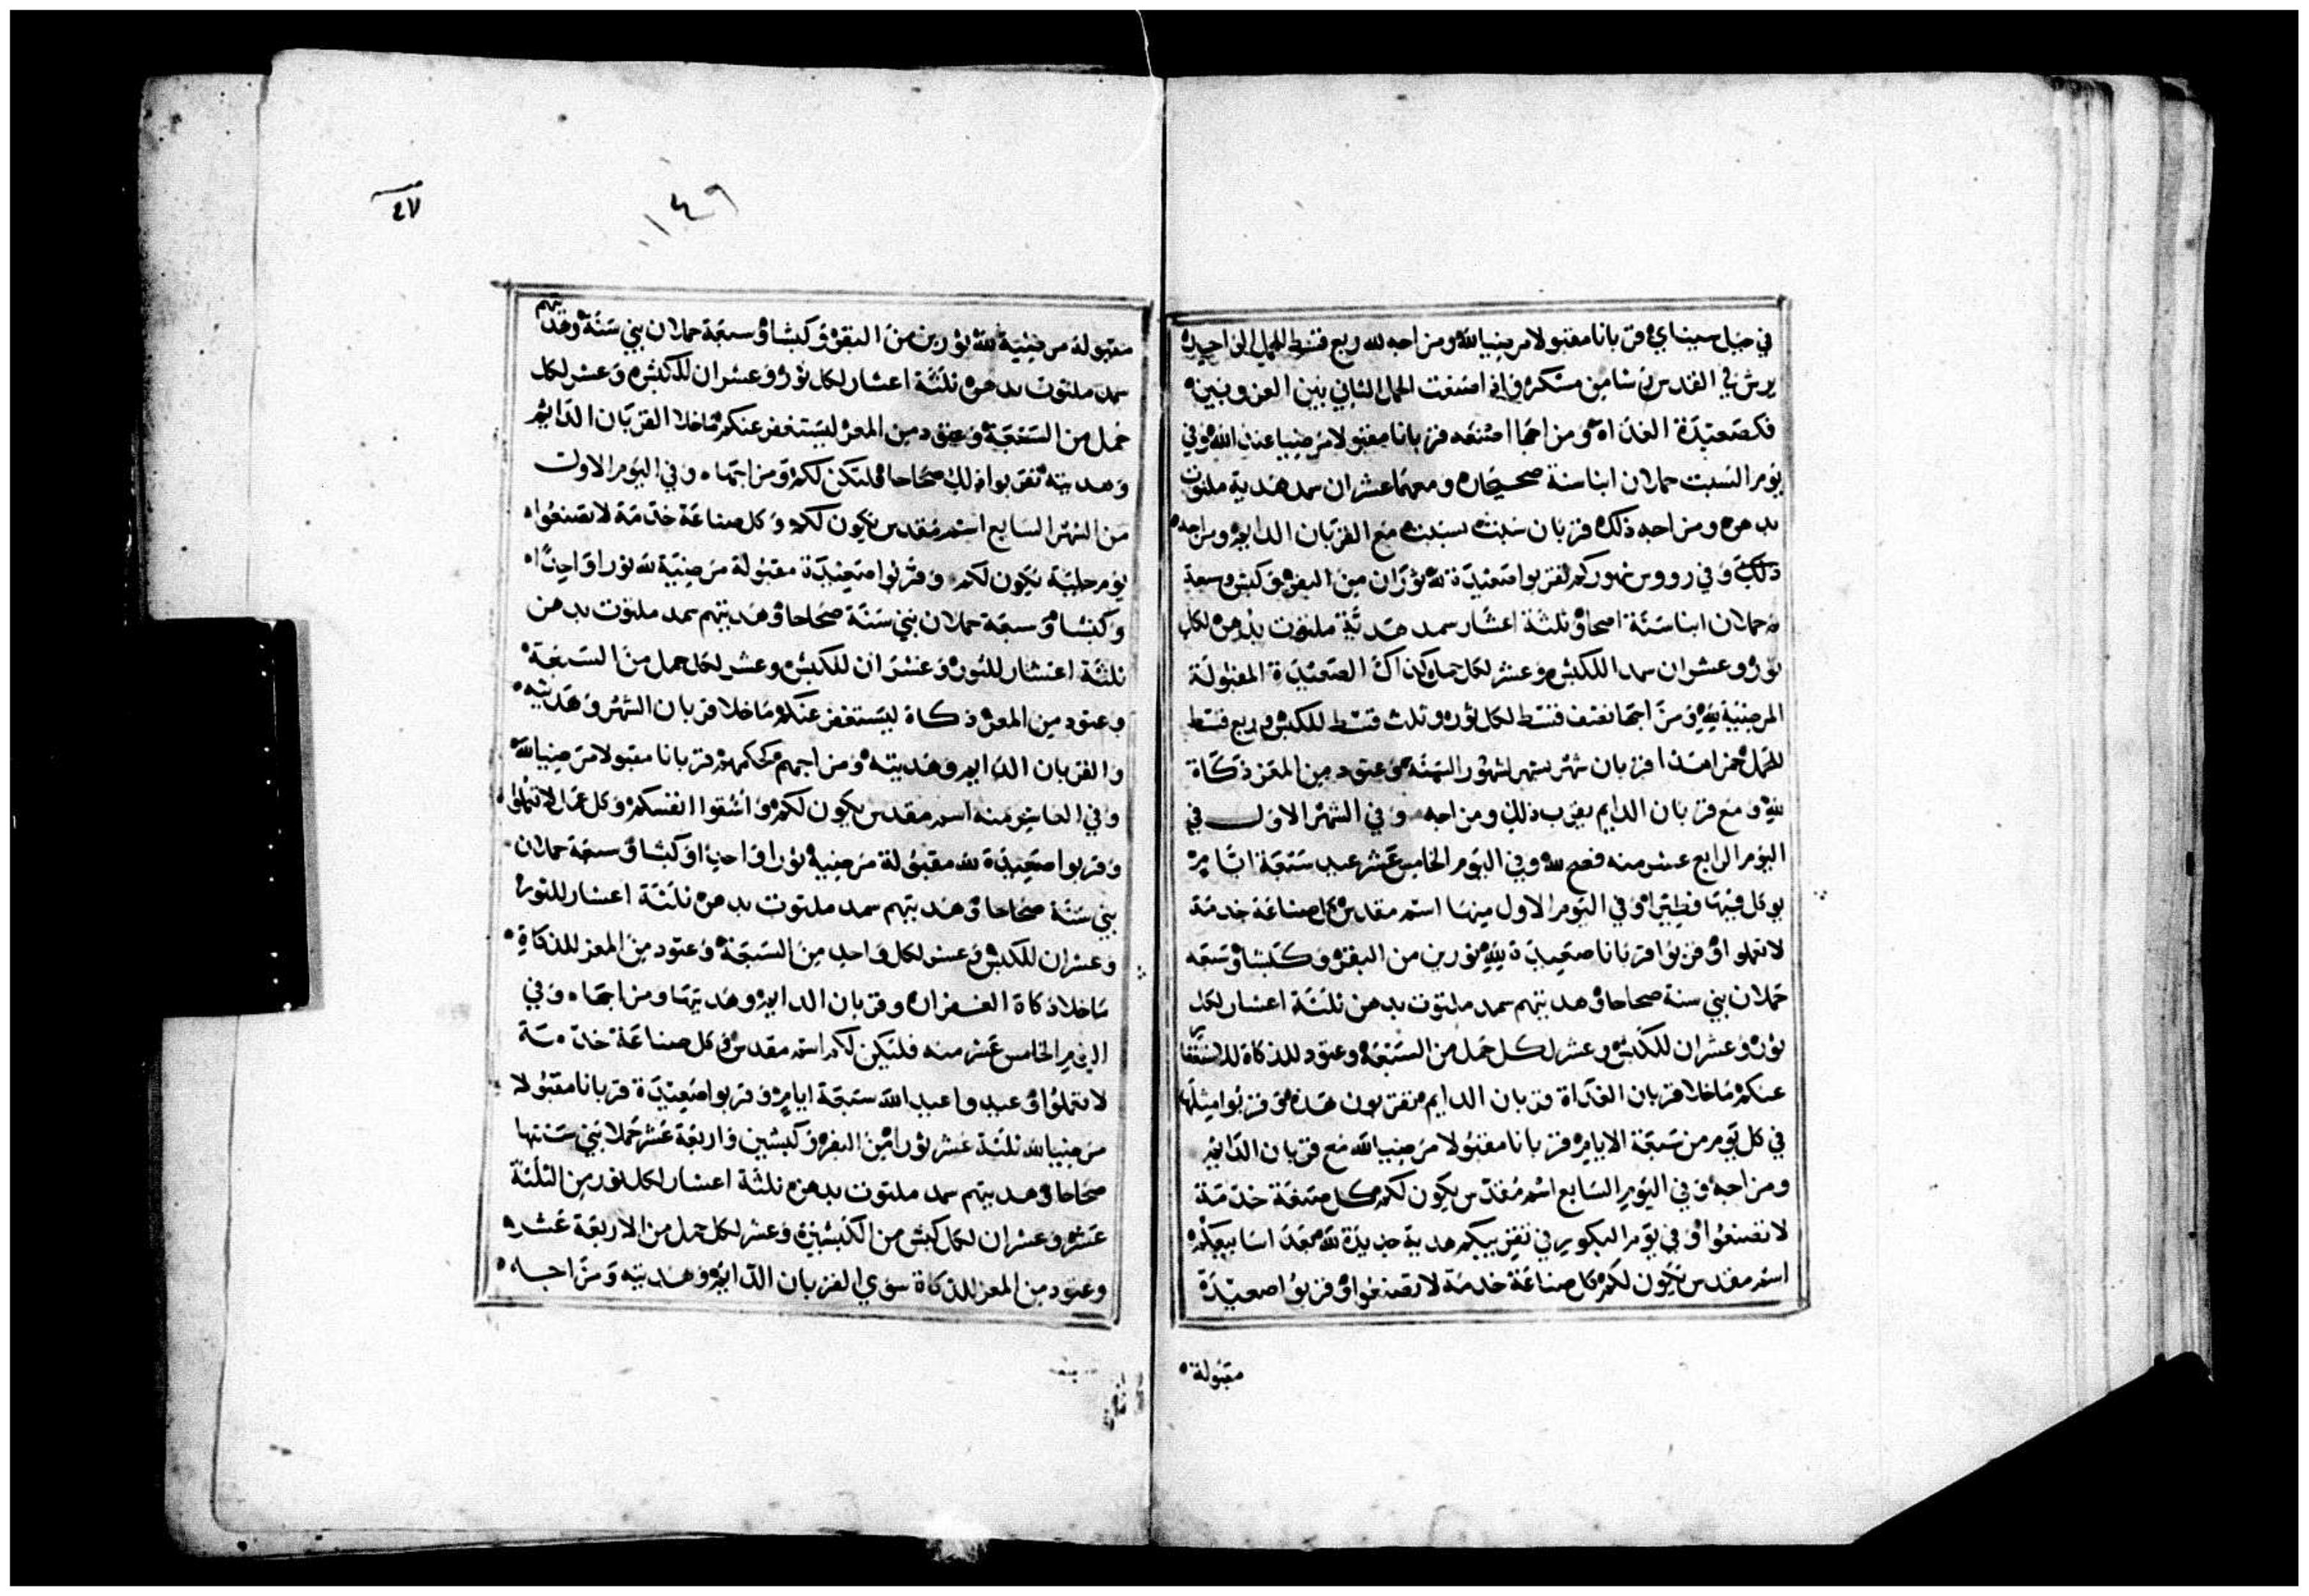 في جبل سيناي قربانا مقبولا مرضيا لله ومزاجه لله ربع قسط للحمل الواحد
يرش في القدس
فكصعيدة الغداه ومزاجها اصنعه قربانا مقبولا مرضيا عند الله وفي
يوم السبت حملان ابنا سنة صحيحان ومعهما عشران سمد هدية ملتوت
بدهن ومزاجه ذلك قربان سبت بسبت مع القربان الدايم ومزاجه
ذلك وفي رووس شهوركم لتقربوا صعيدة لله ثوران من البقر وكبش وسبعة
حملان ابنا سنة اصحا وثلثة اعشار سمد هدية ملتوت بدهن لكل
ثور وعشران سمد للكبش وعشر لكل حمل الصعيدة المقبولة
المرضية لله ومزاجها نصف قسط لكل ثور وثلث قسط للكبش وربع قسط
للحمل خمرا هذا قربان شهر بشهر لشهور السنة وعتود من المعز ذكاة
لله ومع قربان الدايم يقرب ذلك ومزاجه وفي الشهر الاول في
اليوم الرابع عشر منه فصح لله وفي اليوم الخامس عشر عيد سبعة ايام
يوكل فيها فطيرا وفي اليوم الاول منها اسم مقدس كل صناعة خدمة
لا تعملوا وقربوا قربانا صعيدة لله ثورين من البقر وكبشا وسبعه
حملان بني سنة صحاحا وهديتهم سمد ملتوت بدهن ثلثة اعشار لكل
ثور وعشران للكبش وعشر لكل حمل من السبعة وعتود للذكاة للاستغفار
عنكم ما خلا قربان الغداة قربان الدايم تقربون هذه وقربوا مثلها
في كل يوم من سبعة الايام قربانا مقبولا مرضيا لله مع قربان الدايم
ومزاجه وفي اليوم السابع اسم مقدس يكون لكم كل صنعة خدمة
لا تصنعوا وفي يوم البكور في تقريبكم هدية جديدة لله بعد اسابيعكم
اسم مقدس يكون لكم كل صناعة خدمة لا تصنعوا وقربوا صعيدة
مقبولة
٤٧
١٤٩
مقبولة مرضية لله ثورين من البقر وكبشا وسبعة حملان بني سنة وهديتهم
سمد ملتوت بدهن ثلثة اعشار لكل ثور وعشران للكبش وعشر لكل
حمل من السبعة وعتود من المعز ليستغفر عنكم ما خلا القربان الدايم
وهديته تقربوا ذلك صحاحا فلتكن لكم ومزاجها وفي اليوم الاول
من الشهر السابع اسم مقدس يكون لكم وكل صناعة خدمة لا تصنعوا
يوم جلبة يكون لكم وقربوا صعيدة مقبولة مرضية لله ثورا واحدا
وكبشا وسبعة حملان بني سنة صحاحا وهديتهم سمد ملتوت بدهن
ثلثة اعشار للثور وعشران للكبش وعشر لكل حمل من السبعة
وعتود من المعز ذكاة ليستغفر عنكم ما خلا قربان الشهر وهديته
والقربان الدايم وهديته ومزاجهم كحكمهم قربانا مقبولا مرضيا لله
وفي العاشر منه اسم مقدس يكون لكم واشقوا انفسكم وكل عمل لا تعملوا
وقربوا صعيدة لله مقبولة مرضية ثورا واحدا وكبشا وسبعة حملان
بني سنة صحاحا وهديتهم سمد ملتوت بدهن ثلثة اعشار للثور
وعشران للكبش وعشر لكل واحد من السبعة وعتود من المعز للذكاة
ما خلا ذكاة الغفران وقربان الدايم وهديتها ومزاجها وفي
اليوم الخامس عشر منه فليكن لكم اسم مقدس وكل صناعة خدمة
لا تعملوا وعيدوا عيد الله سبعة ايام وقربوا صعيدة قربانا مقبولا
مرضيا لله ثلثة عشر ثورا من البقر وكبشين واربعة عشر حملا بني سنتها
صحاحا وهديتهم سمد ملتوت بدهن ثلثة اعشار لكل ثور من الثلثة
عشر وعشران لكل كبش من الكبشين وعشر لكل حمل من الاربعة عشر
وعتود من المعز للذكاة سوي القربان الدايم وهديته ومزاجه